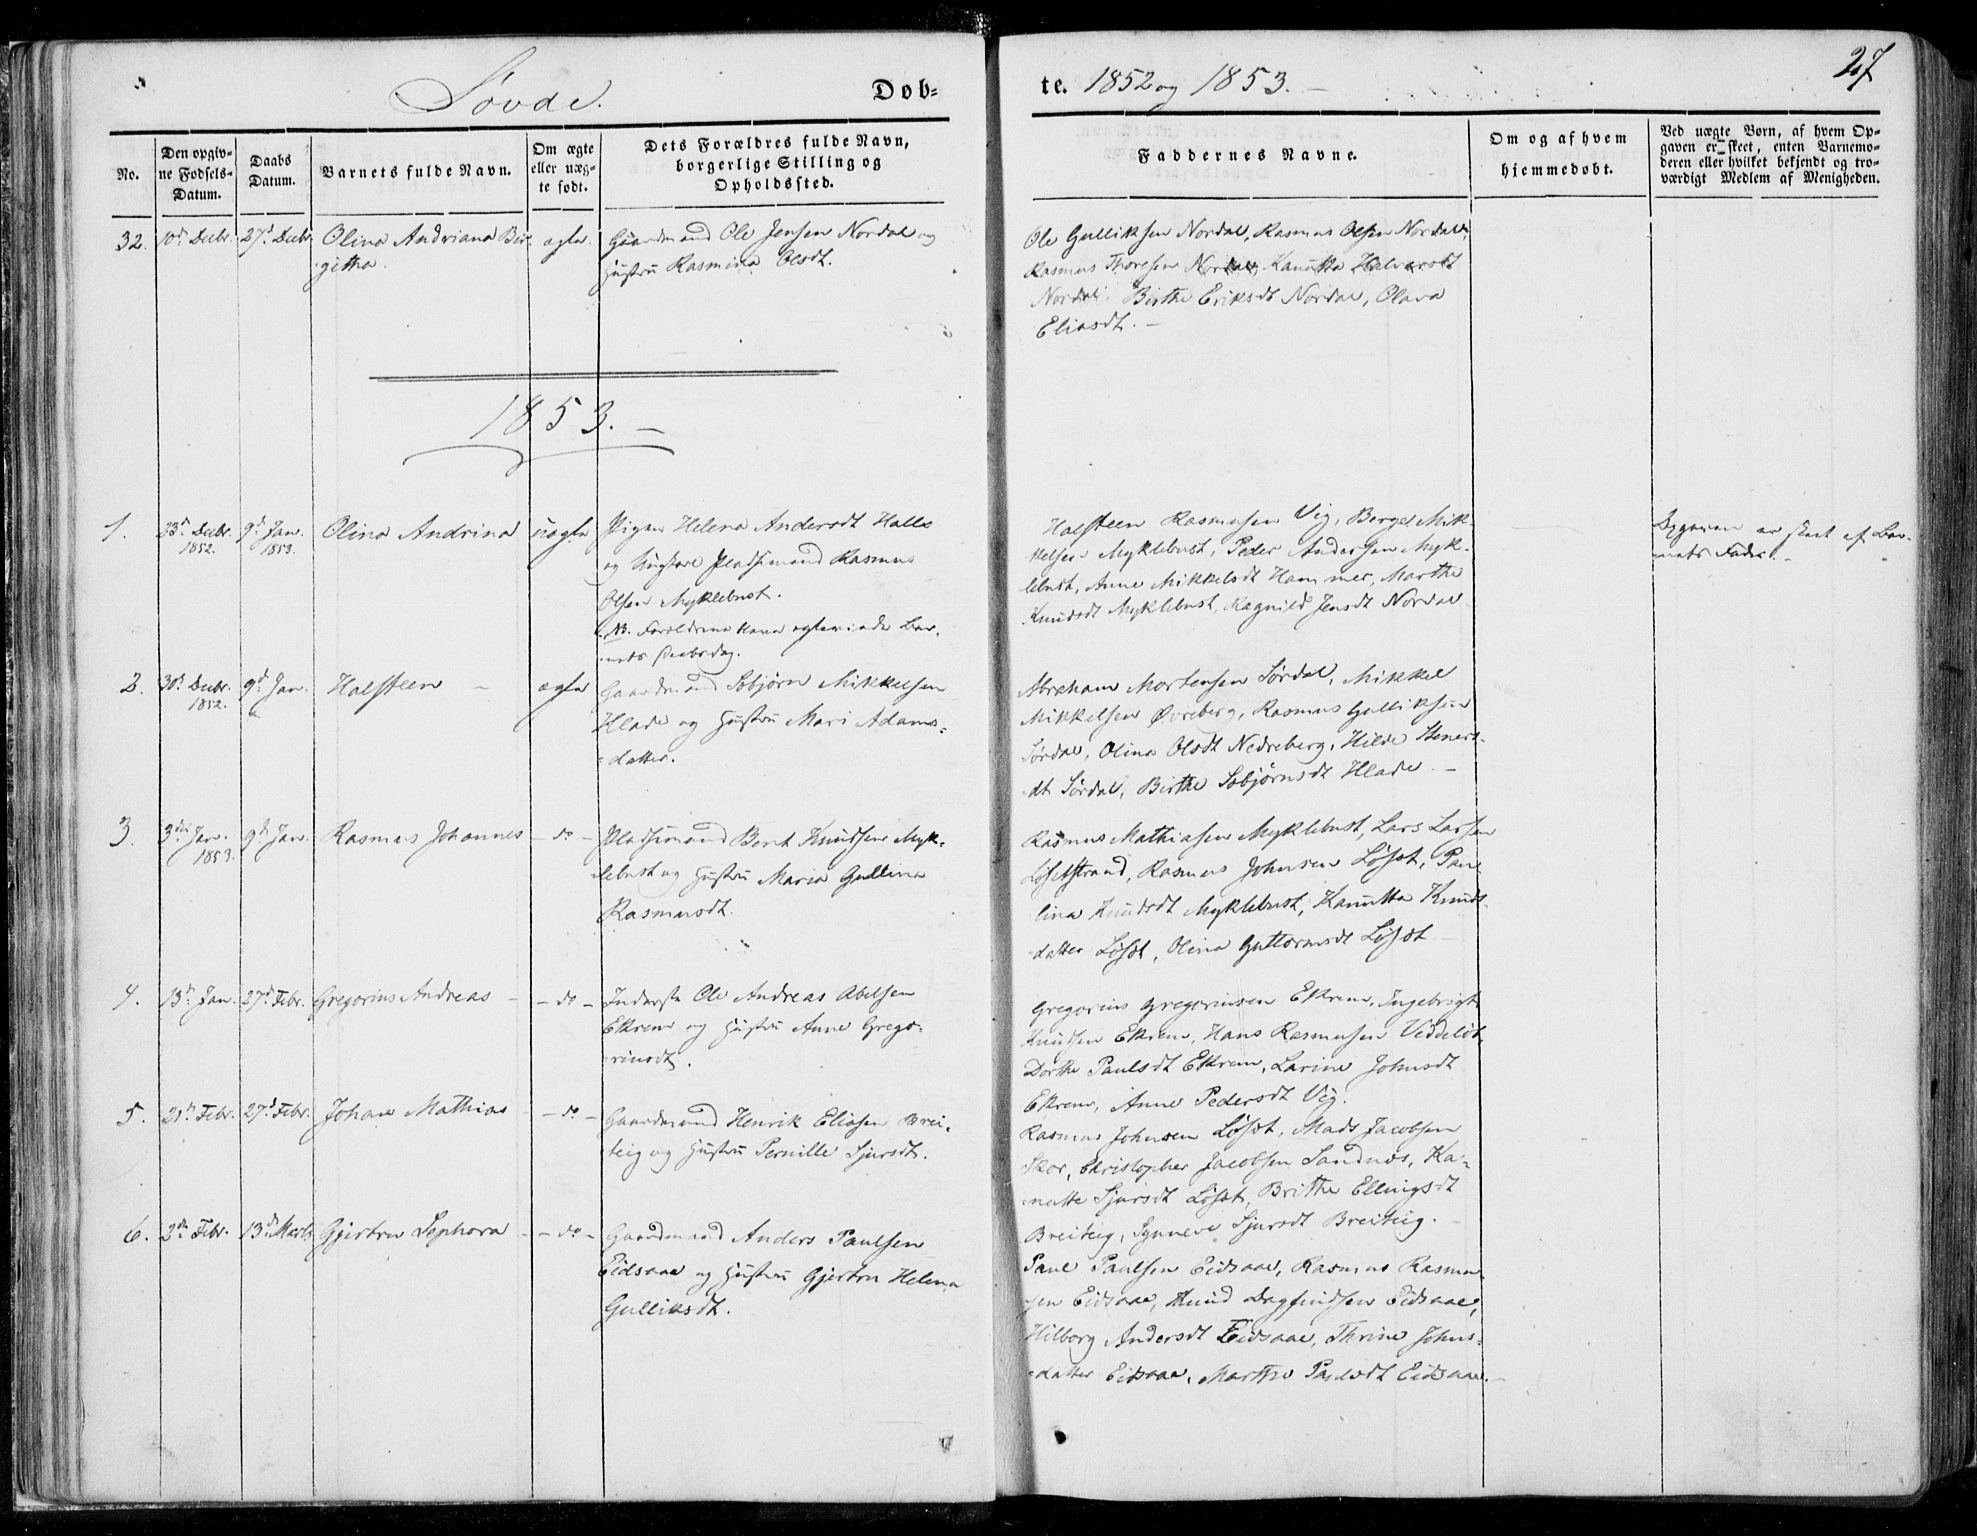 Søvde. Døb-
te. 1852 og 1853. 27
No.
Den opgiv-
ne Fødsels-
Datum.
Daabs
Datum.
Barnets fulde Navn.
Om ægte
eller uæg-
te født.
Dets Forældres fulde Navn,
borgerlige Stilling og
Opholdssted.
Faddernes Navne.
Om og af hvem
hjemmedøbt.
Ved uægte Børn, af hvem Op-
gaven er skeet, enten Barnemo-
deren eller hvilket bekjendt og tro-
værdigt Medlem af Menigheden.
32. 10de Decbr. 27d Decbr Olina Andriana Bir-
githa.
ægte
Gaardmand Ole Jensen Nordal og
Hustru Rasmina Olsdt.
Ole Gulliksen Nordal, Rasmus Olsen Nordal,
Rasmus Thoresen Nordal, Kanutta Halvorsdt
Nordal, Birthe Eriksdt Nordal, Olava
Eliasdt. –
1853. –
1. 23d Decbr. 1852. 9d Jan. 1853. Olina Andrina uægte
Pigen Helena Andersdt Halle
og Ungkare Pladsemand Rasmus
Olsen Myklebust.
NB. Forældrene bleve ægteviede Bar-
nets Daabsdag.
Halsteen Rasmusen Vig, Berge Mik-
kelsen Myklebust, Peder Andersen Myk-
lebust, Anne Mikkelsdt Hammer, Marthe
Knudsdt Myklebust, Ragnild Jensdt Nordal
Opgaven er skeet af Bar-
nets Fader. –
2. 30d Decbr. 1852. 9d Jan. Halsteen – ægte
Gaardmand Sobjørn Mikkelsen
Hlade og Hustru Mari Adams-
datter.
Abraham Mortensen Sørdal, Mikkel
Mikkelsen Øvreberg, Rasmus Gulliksen
Sørdal, Olina Olsdt Nedreberg, Hilde
dt Sørdal, Birthe Sobjørnsdt Hlade –
3. 3die Jan. 1853. 9d Jan. Rasmus Johannes – do –
Pladsemand Bent Knudsen Myk-
lebust og Hustru Maria Gullina
Rasmusdt.
Rasmus Mathiasen Myklebust, Lars Larsen
Løsetstrand, Rasmus Johnsen Løset, Pau-
lina Knudsdt Myklebust, Kanutta Knuds-
datter Løset, Olina Guttormsdt Løset
4. 13d Jan. 27d Febr. Gregorius Andreas – – do –
Inderste Ole Andreas Abelsen
Ekrem og Hustru Anne Grego-
riusdt.
Gregorius Gregoriusen Ekrem, Ingebrigt
Knudsen Ekrem, Hans Rasmusen Veddeløt
Dorthe Paulsdt Ekrem, Larine Johnsdt
Ekrem, Anne Pedersdt Vig.
5. 21d Febr. 27d Febr. Johan Mathias – do –
Gaardmand Henrik Eliasen Brei-
teig og Hustru Pernille Sjursdt.
Rasmus Johnsen Løset, Mads Jacobsen
Skor, Christopher Jacobsen Sandnæs, Ka-
nutte Sjursdt Løset, Brithe Ellingsdt
Breiteig, Synneve Sjursdt Breiteig. –
6. 2de Febr. 13d Marts Gjertru Sephora – do –
Gaardmand Anders Paulsen
Eidsaae og Hustru Gjertru Helena
Gulliksdt.
Paul Paulsen Eidsaae, Rasmus Rasmu-
sen Eidsaae, Knud Dagfindsen Eidsaae,
Hilborg Andersdt Eidsaae, Thrine Johns-
datter Eidsaae, Marthe Paulsdt Eidsaae. –